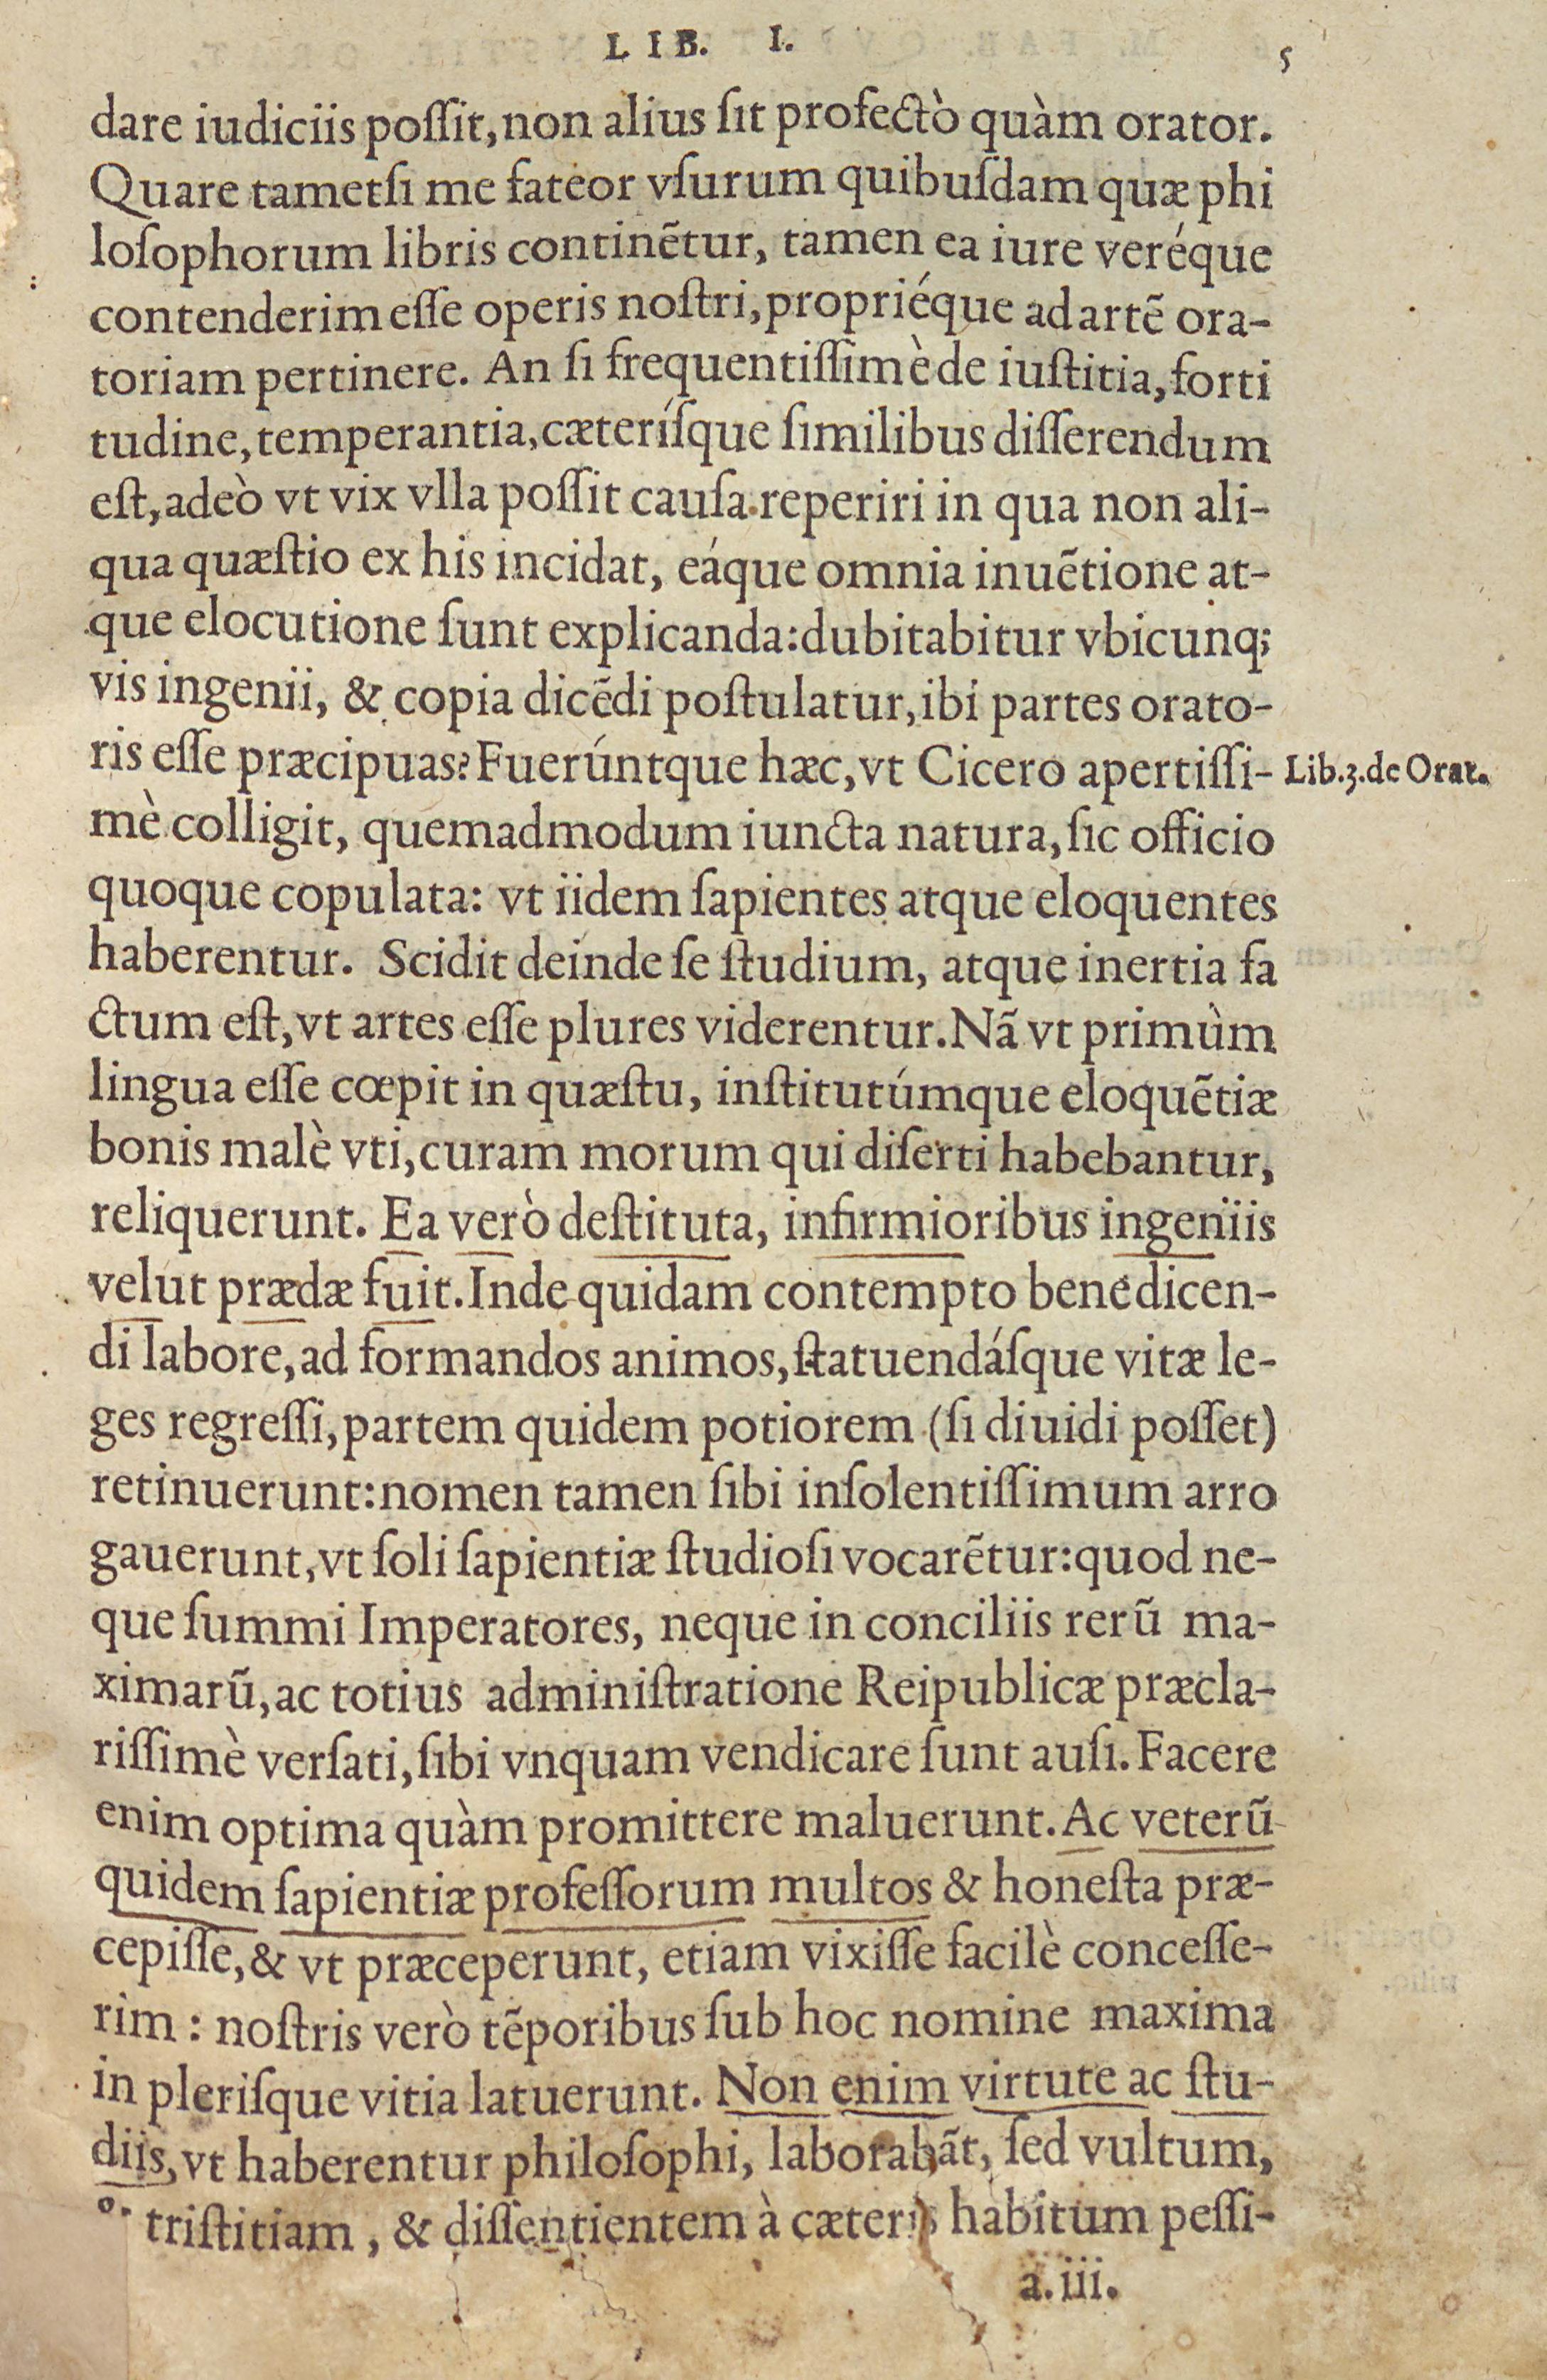 LIB. I. 5
dare iudiciis poſſit, non alius ſit profectò quàm orator.
Quare tametſi me fateor vſurum quibuſdam quæ phi
loſophorum libris continẽtur, tamen ea iure veréque
contenderim eſſe operis noſtri, propriéque ad artẽ ora-
toriam pertinere. An ſi frequentiſſimè de iuſtitia, forti
tudine, temperantia, cæteríſque ſimilibus diſſerendum
eſt, adeò vt vix vlla poſſit cauſa reperiri in qua non ali-
qua quæſtio ex his incidat, eáque omnia inuẽtione at-
que elocutione ſunt explicanda: dubitabitur vbicunq;
vis ingenii, & copia dicẽdi poſtulatur, ibi partes orato-
ris eſſe præcipuas? Fuerúntque hæc, vt Cicero apertiſſi- Lib.3.de Orat.
mè colligit, quemadmodum iuncta natura, ſic officio
quoque copulata: vt iidem ſapientes atque eloquentes
haberentur. Scidit deinde ſe ſtudium, atque inertia fa
ctum eſt, vt artes eſſe plures viderentur. Nã vt primùm
lingua eſſe cœpit in quæſtu, inſtitutúmque eloquẽtiæ
bonis malè vti, curam morum qui diſerti habebantur,
reliquerunt. Ea verò deſtituta, infirmioribus ingeniis
velut prædæ fuit. Inde quidam contempto bene dicen-
di labore, ad formandos animos, ſtatuendáſque vitæ le-
ges regreſſi, partem quidem potiorem (ſi diuidi poſſet)
retinuerunt: nomen tamen ſibi inſolentiſſimum arro
gauerunt, vt ſoli ſapientiæ ſtudioſi vocarẽtur: quod ne-
que ſummi Imperatores, neque in conciliis rerũ ma-
ximarũ, ac totius adminiſtratione Reipublicæ præcla-
riſſimè verſati, ſibi vnquam vendicare ſunt auſi. Facere
enim optima quàm promittere maluerunt. Ac veterũ
quidem ſapientiæ profeſſorum multos & honeſta præ-
cepiſſe, & vt præceperunt, etiam vixiſſe facilè conceſſe-
rim : noſtris verò tẽporibus ſub hoc nomine maxima
in pleriſque vitia latuerunt. Non enim virtute ac ſtu-
diis, vt haberentur philoſophi, laborabãt, ſed vultum,
triſtitiam, & diſſentientem à cæteris habitum peſſi-
a.iii.